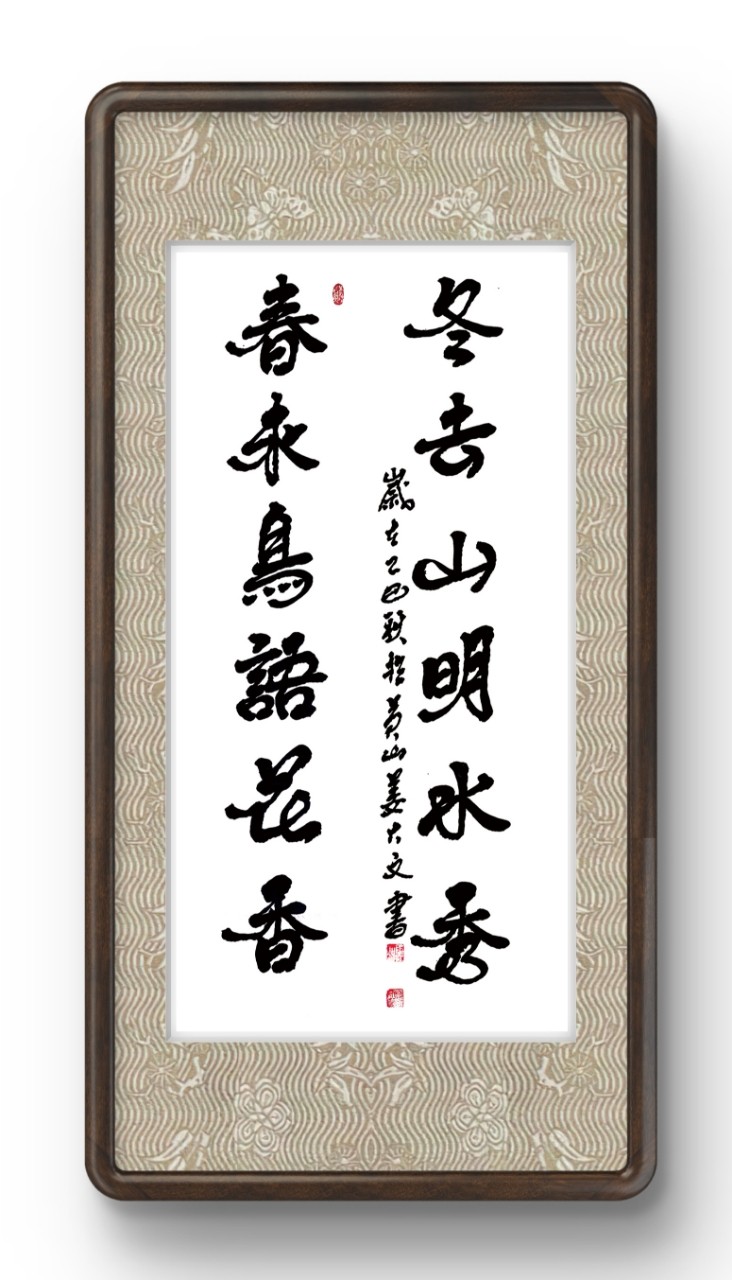 冬去山明水秀
春来鳥語花香
歲在乙巳 黄山姜大文書